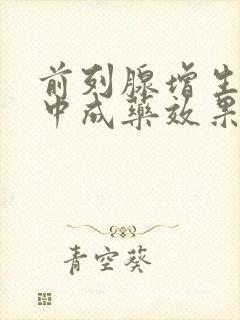 前列腺增生
中成药效果
青空葵